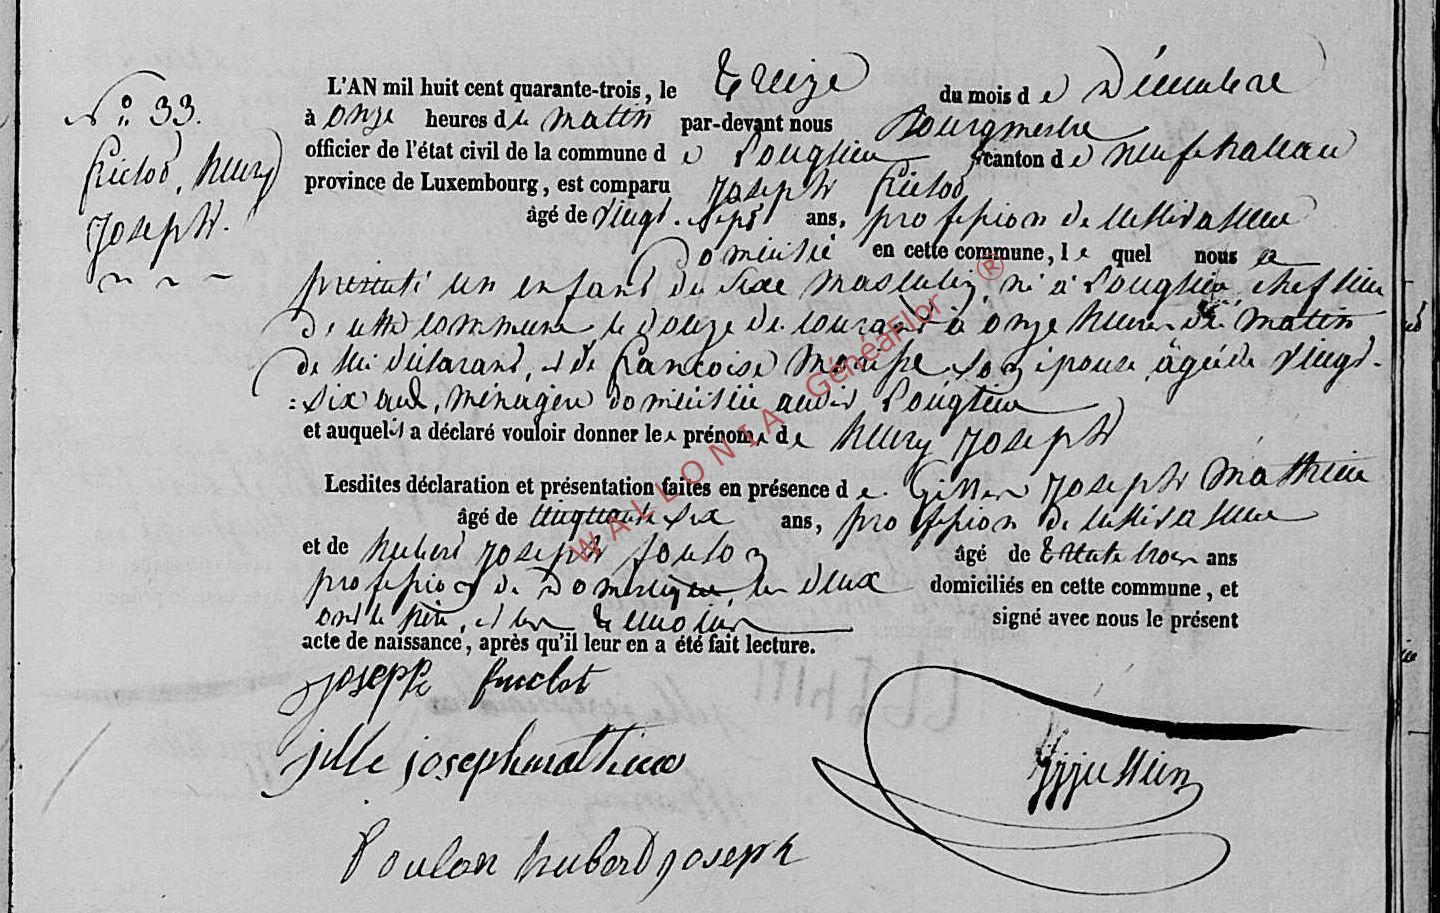 N° 33.
Henry
Joseph.
L'AN mil huit cent quarante-trois, le treize du mois de Décembre
à onze heures du matin par-devant nous Bourgmestre
officier de l'état civil de la commune de Longlier canton de neufchateau
province de Luxembourg, est comparu Joseph
âgé de vingt-sept ans, profession de cultivateur
Domicilié en cette commune, lequel nous a
présenté un enfant du sexe masculin, né à Longlier, chef lieu
de cette commune le douze du courant à onze heures du matin
de lui déclarant, et de françoise son épouse, âgée de vingt-
six ans, ménagère domiciliée audit Longlier
et auquel il a déclaré vouloir donner les prénoms de henry Joseph
Lesdites déclaration et présentation faites en présence de Joseph Mathieu
âgé de cinquante six ans, profession de cultivateur
et de hubert Joseph âgé de trente trois ans
profession de Domestique, les deux domiciliés en cette commune, et
ont le père, et les témoins signé avec nous le présent
acte de naissance, après qu'il leur en a été fait lecture.
joseph
jille joseph mathieu
hubert joseph
WALLONIA GénéaFlor ®